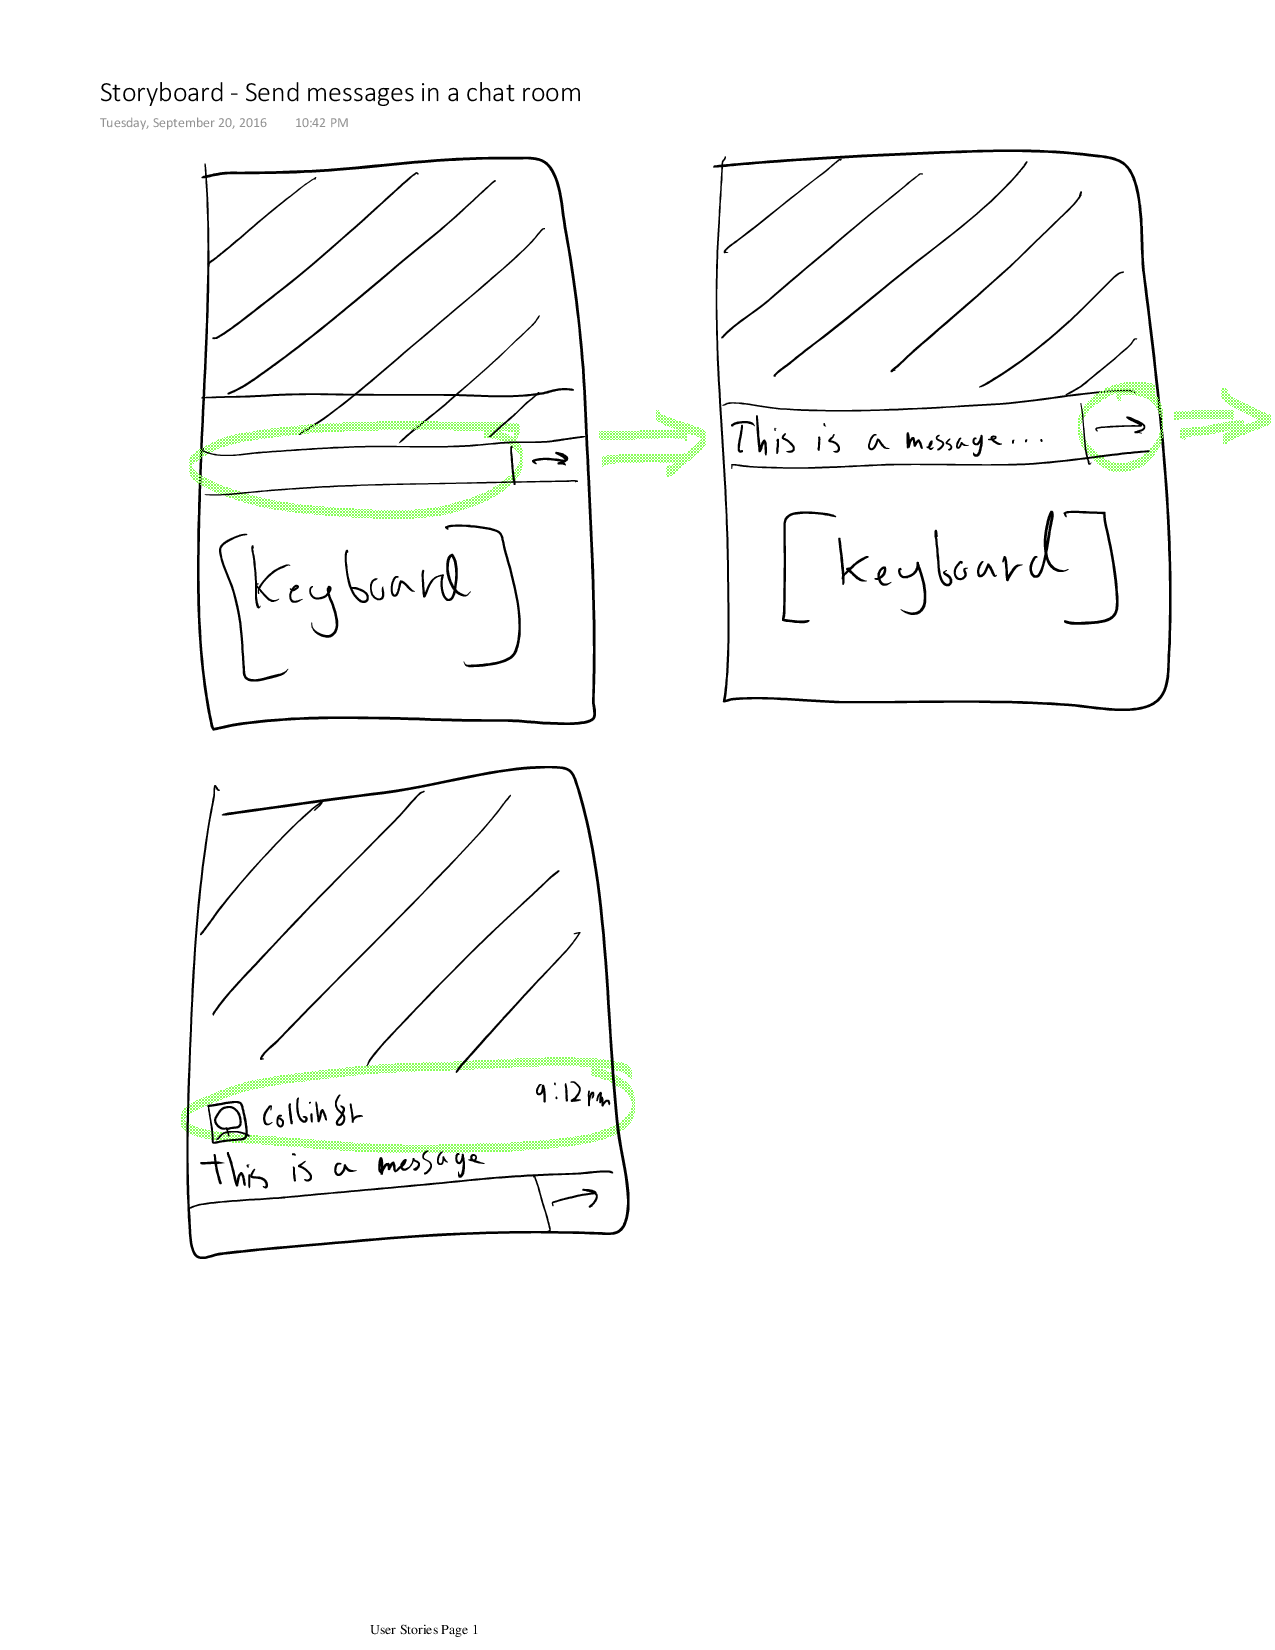 Storyboard - Send messages in a chat room
Tuesday, September 20, 2016 10:42 PM
[Keyboard]
This is a message...
[Keyboard]
9:12pm
This is a message
User Stories Page 1